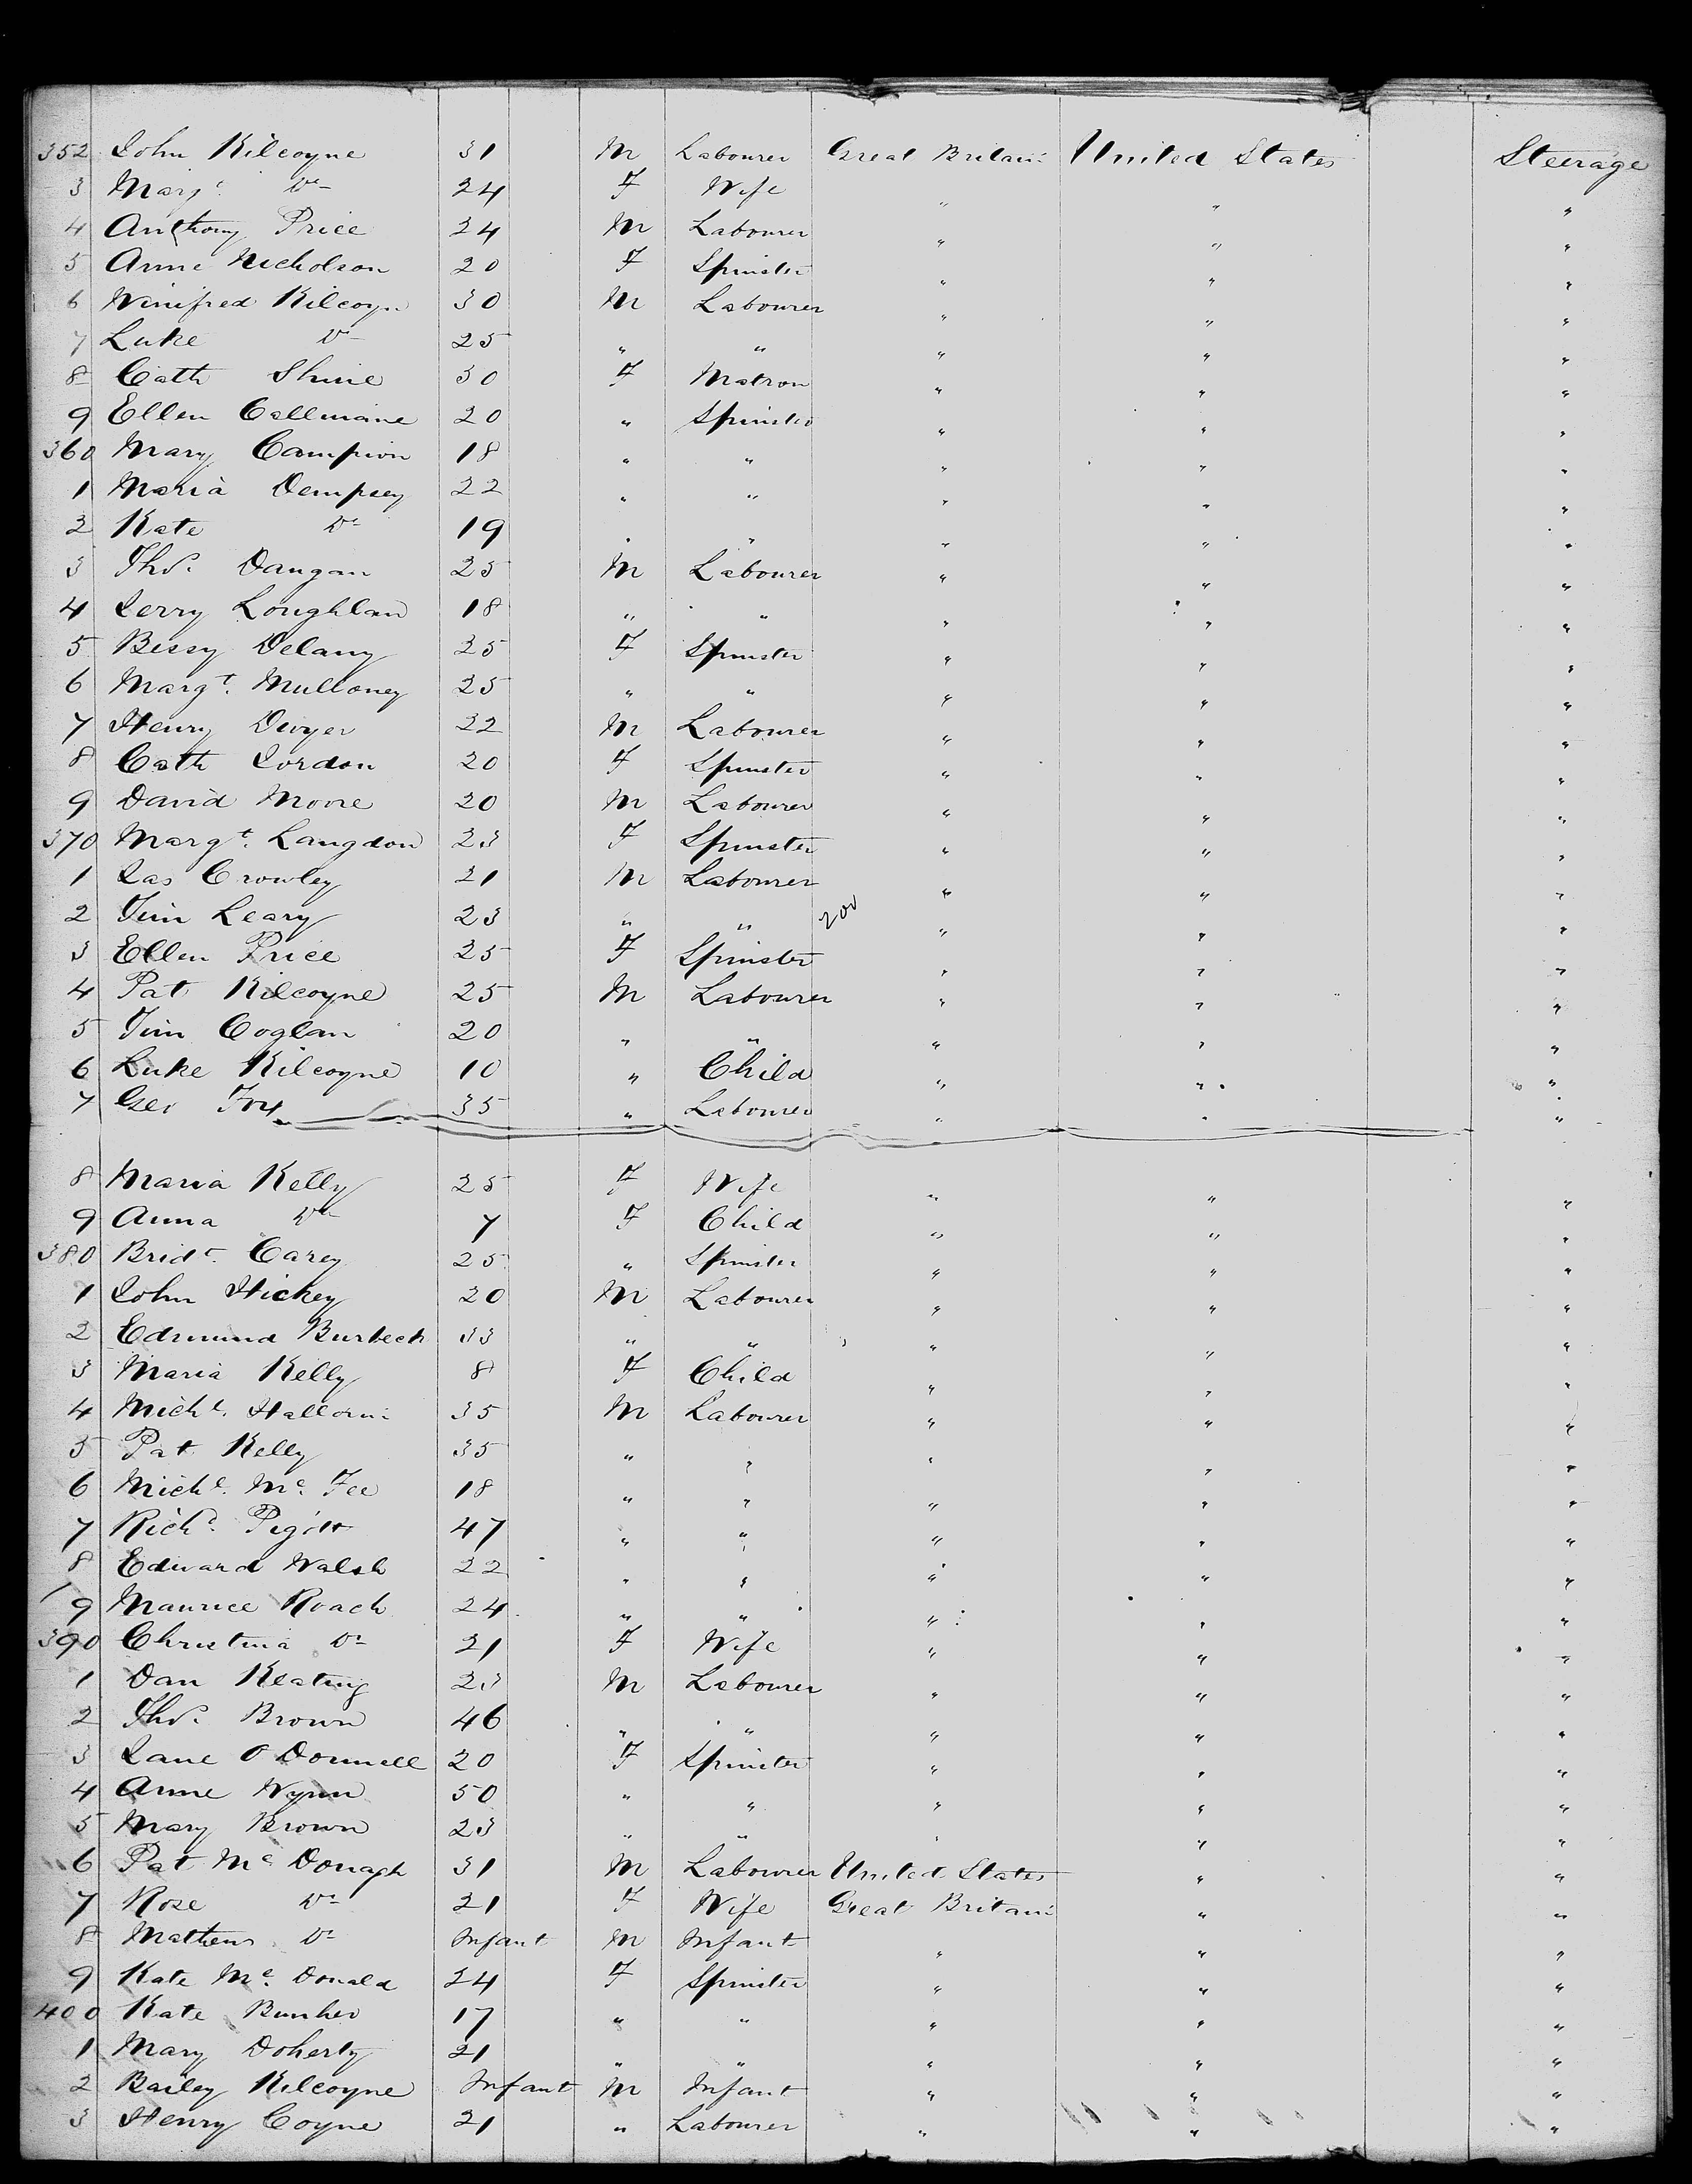 352 John Kilcoyne 31 M Labourer Great Britain United States Steerage
3 Margt Do 24 F Wife " " "
4 Anthony Price 24 M Labourer " " "
5 Anne Nicholson 20 F Spinster " " "
6 Winifred Kilcoyn 30 M Labourer " " "
7 Luke Do 25 " " " " "
8 Cath Shine 30 F Matron " " "
9 Ellen Callinaine 20 " Spinster " " "
360 Mary Campion 18 " " " " "
1 Maria Dempsey 22 " " " " "
2 Kate Do 19 " " " " "
3 Thos. Dangan 25 M Labourer " " "
4 Jerry Loughlan 18 " " " " "
5 Bessy Delany 25 F Spinster " " "
6 Margt. Mulloney 25 " " " " "
7 Henry Dwyer 22 M Labourer " " "
8 Cath Jordan 20 F Spinster " " "
9 David Moore 20 M Labourer " " "
370 Margt. Langdon 23 F Spinster " " "
1 Jas Crowley 21 M Labourer " " "
2 Tim Leary 23 " " 200 " " "
3 Ellen Price 25 F Spinster " " "
4 Pat Kilcoyne 25 M Labourer " " "
5 Tim Coglan 20 " " " " "
6 Luke Kilcoyne 10 " Child " " "
7 Geo Fox 35 " Labourer " " "
8 Maria Kelly 25 F Wife " " "
9 Anna Do 7 F Child " " "
380 Bridt. Carey 25 " Spinster " " "
1 John Hickey 20 M Labourer " " "
2 Edmund Burbeck 33 " " " " "
3 Maria Kelly 8 F Child " " "
4 Michl. Halloran 35 M Labourer " " "
5 Pat Kelly 35 " " " " "
6 Michl. Mc. Fee 18 " " " " "
7 Richd. Pigott 47 " " " " "
8 Edward Walsh 22 " " " " "
9 Maurice Roach 24 " " " " "
390 Christina Do 21 F Wife " " "
1 Dan Keating 23 M Labourer " " "
2 Thos. Brown 46 " " " " "
3 Jane O Donnell 20 F Spinster " " "
4 Anne Wynn 50 " " " " "
5 Mary Brown 23 " " " " "
6 Pat Mc Donagh 31 M Labourer United States " "
7 Rose Do 21 F Wife Great Britain " "
8 Mathew Do Infant M Infant " " "
9 Kate Mc. Donald 24 F Spinster " " "
400 Kate Bunker 17 " " " " "
1 Mary Doherty 21 " " " " "
2 Bailey Kilcoyne Infant M Infant " " "
3 Henry Coyne 21 " Labourer " " "